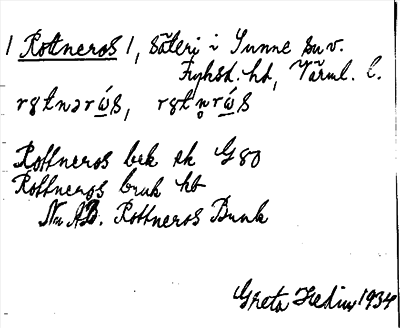 / Rottneros /, säteri i Sunne sn v.
Fryksd. hd, Värml. l.
Rottneros bruk ek G80
Rottneros bruk hd
Nu AB. Rottneros Bruk
Greta Hedin 1934